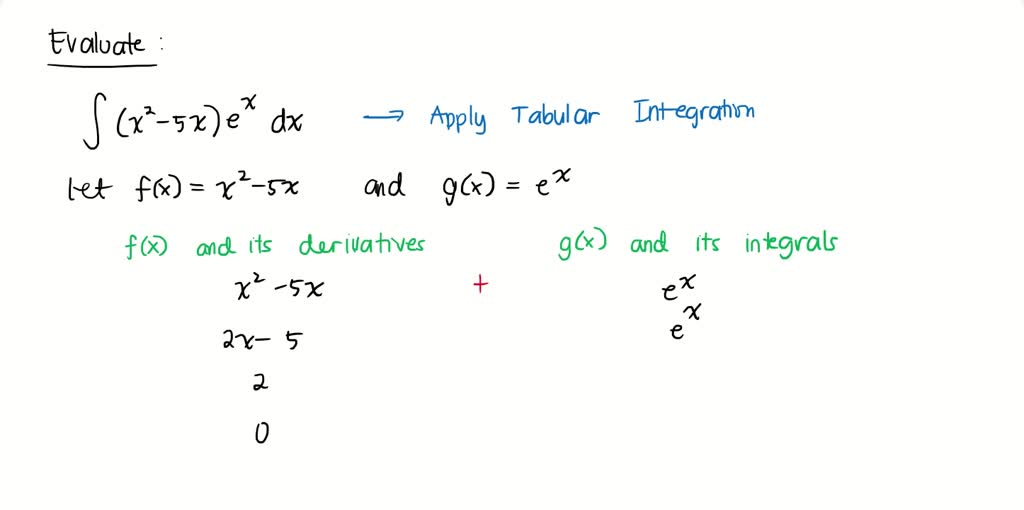 Evaluate :
∫ (x²-5x) eˣ dx → Apply Tabular Integration
Let f(x) = x²-5x and g(x) = eˣ
f(x) and its derivatives g(x) and its integrals
x² -5x + eˣ
2x- 5 eˣ
2
0